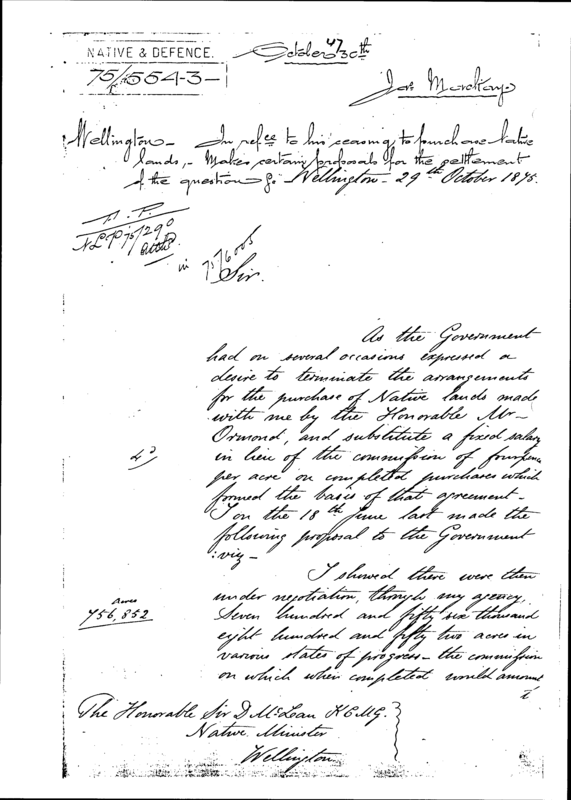 47
NATIVE & DEFENCE.
October 30th
75/5543
Jas Mackay
Wellington - In refce to his ceasing to purchase Native
lands, - Makes certain proposals for the settlement
of the question
Wellington - 29th October 1875.
N.L.P. 75/290
in 75/6005
Sir.
As the Government
had on several occasions expressed a
desire to terminate the arrangements
for the purchase of Native lands made
with me by the Honorable Mr
Ormond, and substitute a fixed salary
4d
in lieu of the commission of fourpence
per acre on completed purchases which
formed the basis of that agreement -
I on the 18th June last made the
following proposal to the Government
:viz -
I showed there were then
under negotiation, through my agency,
acres
756,852
Seven hundred and fifty six thousand
eight hundred and fifty two acres in
various states of progress - the commission
on which when completed would amount
to
The Honorable Sir D McLean K.C.M.G.
Native Minister
Wellington